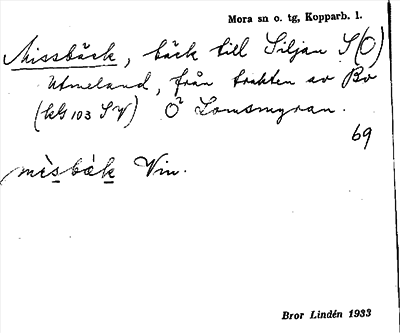 Mora sn o. tg, Kopparb. l.
Missbäck, bäck till Siljan S(O)
Utmeland, från trakten av Bo
(kG 103 SV) O² Lomsmyran.
69
mìsbàk Vin.
Bror Lindén 1933